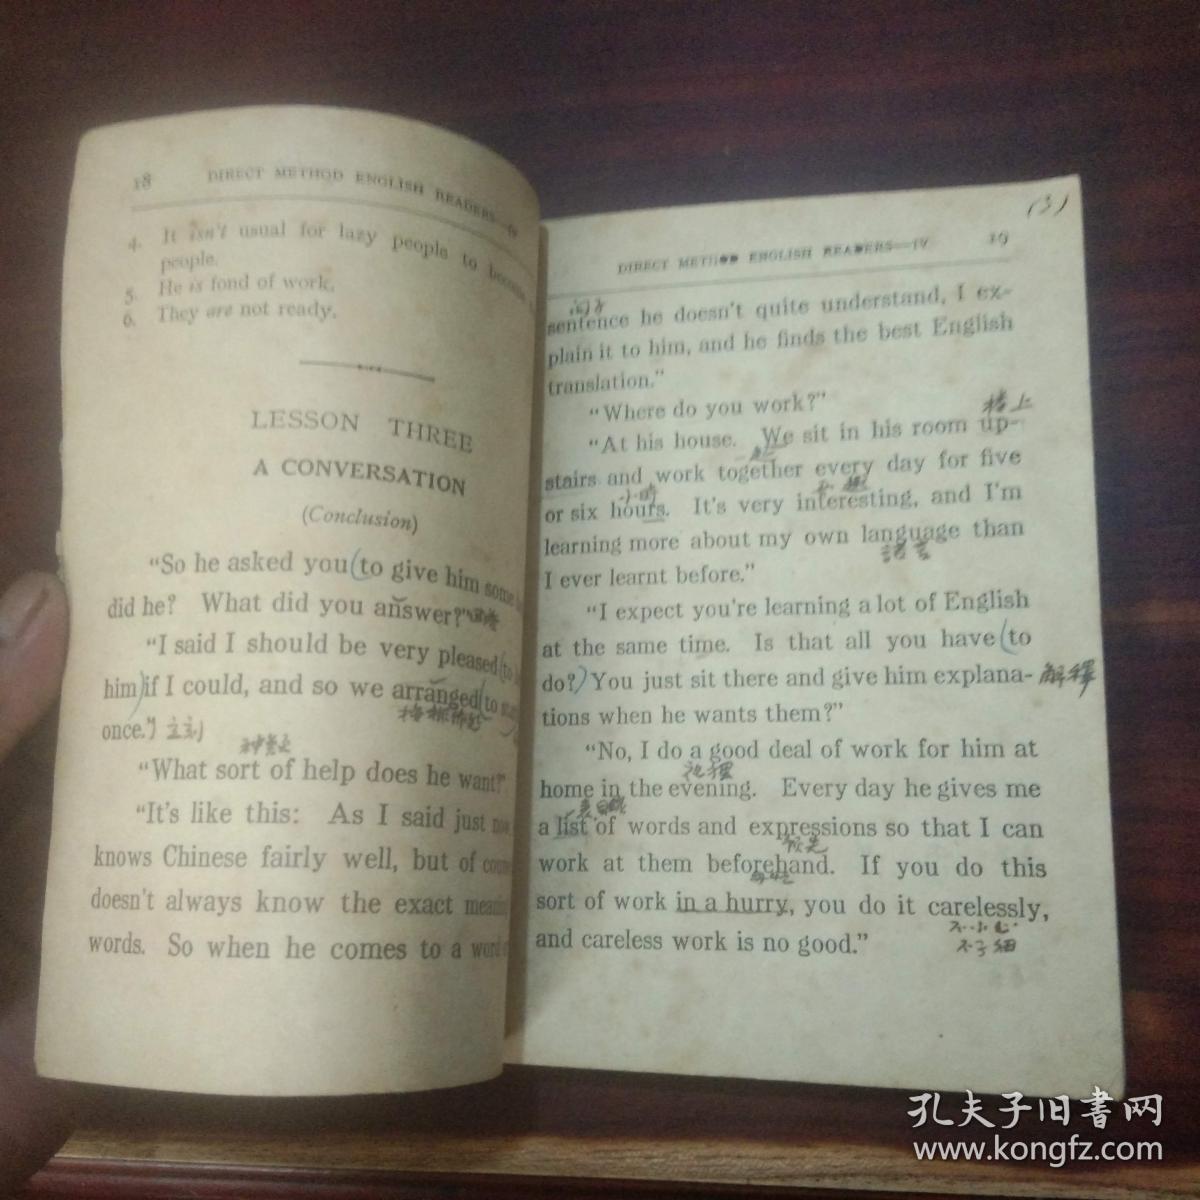 18 DIRECT METHOD ENGLISH READERS—IV
4. It isn't usual for lazy people to become
people.
5. He is fond of work.
6. They are not ready.
LESSON THREE
A CONVERSATION
(Conclusion)
"So he asked you (to give him some
did he? What did you answer?"
"I said I should be very pleased (to
him) if I could, and so we arranged (to
once." 立刻
"What sort of help does he want?"
"It's like this: As I said just now,
knows Chinese fairly well, but of course
doesn't always know the exact meaning
words. So when he comes to a word
(3)
DIRECT METHOD ENGLISH READERS—IV 19
sentence he doesn't quite understand, I ex-
plain it to him, and he finds the best English
translation."
"Where do you work?"
樓上
"At his house. We sit in his room up-
stairs and work together every day for five
小時
or six hours. It's very interesting, and I'm
learning more about my own language than
語言
I ever learnt before."
"I expect you're learning a lot of English
at the same time. Is that all you have (to
do?) You just sit there and give him explana- 解釋
tions when he wants them?"
"No, I do a good deal of work for him at
home in the evening. Every day he gives me
a list of words and expressions so that I can
預先
work at them beforehand. If you do this
sort of work in a hurry, you do it carelessly,
不小心
and careless work is no good." 不子細
孔夫子旧書网
www.kongfz.com